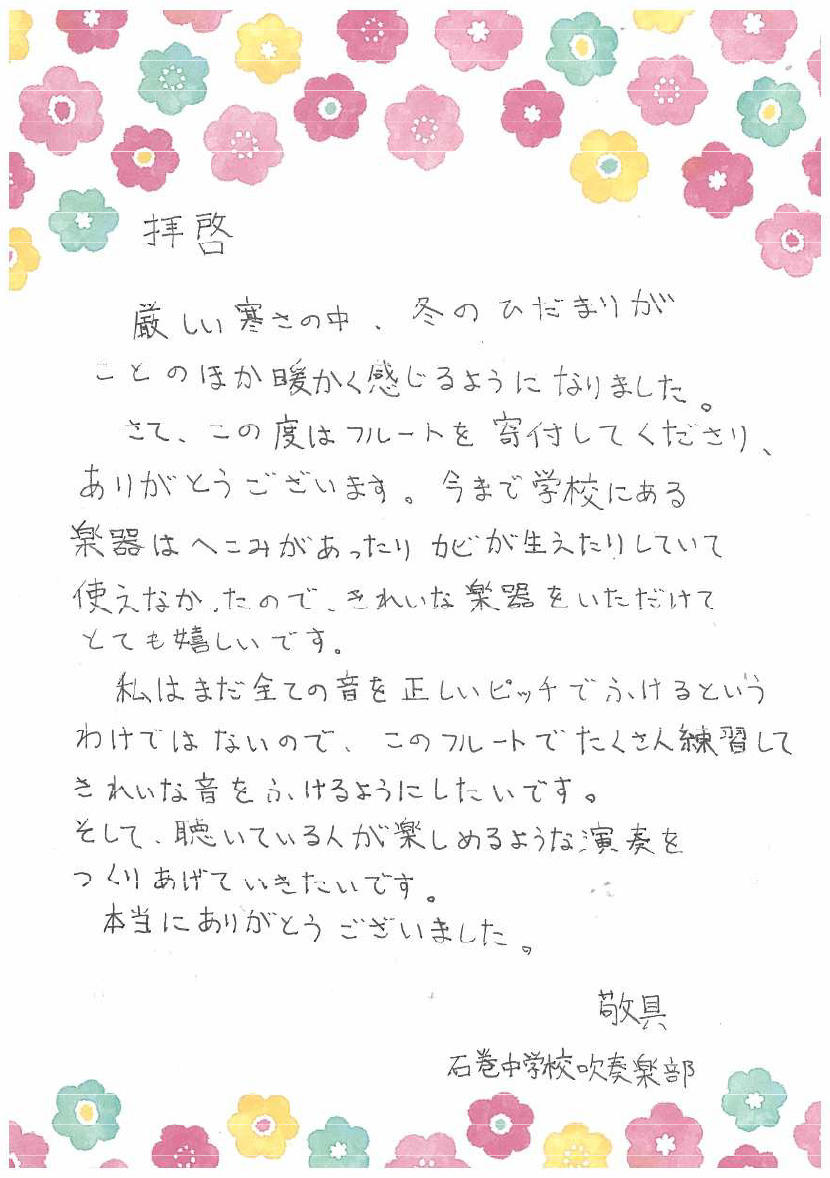 拝啓
厳しい寒さの中、冬のひだまりが
ことのほか暖かく感じるようになりました。
さて、この度はフルートを寄付してくださり、
ありがとうございます。今まで学校にある
楽器はへこみがあったりカビが生えたりしていて
使えなかったので、きれいな楽器をいただけて
とても嬉しいです。
私はまだ全ての音を正しいピッチでふけるという
わけではないので、このフルートでたくさん練習して
きれいな音をふけるようにしたいです。
そして、聴いている人が楽しめるような演奏を
つくりあげていきたいです。
本当にありがとうございました。
敬具
石巻中学校吹奏楽部